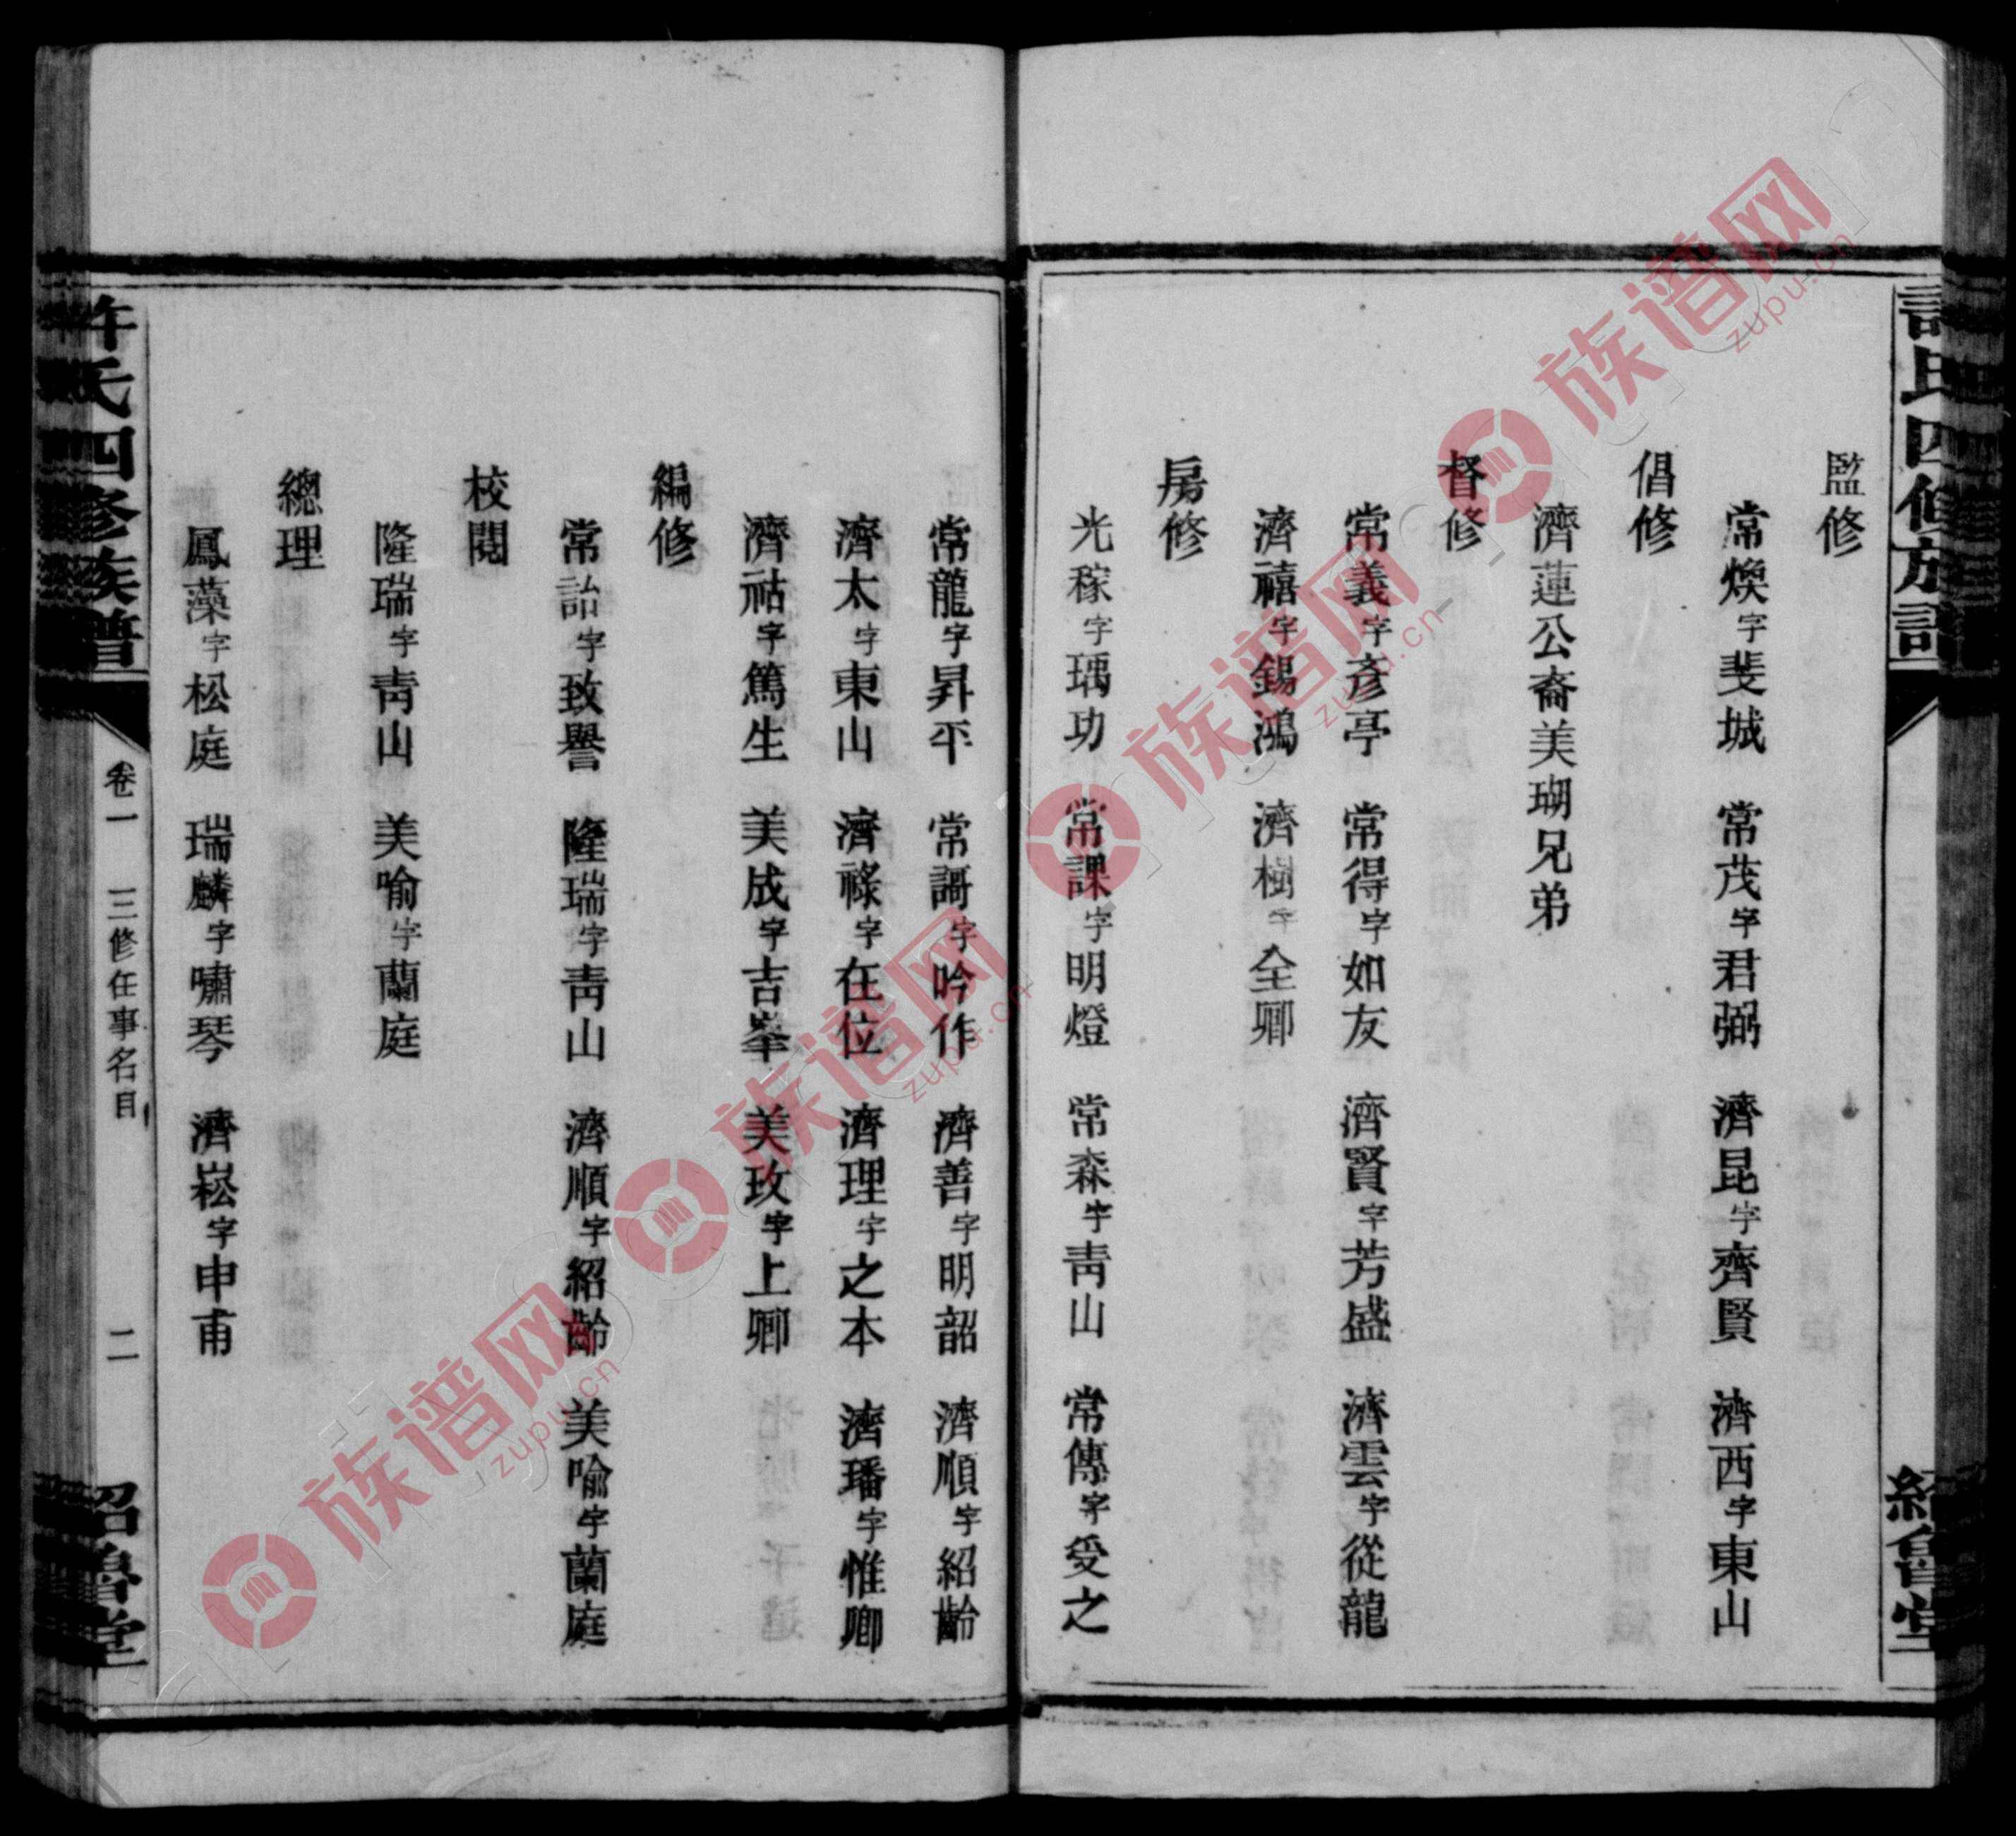 許氏四修族譜
紹魯堂
監修
常煥字斐城 常茂字君弼 濟昆字齊賢 濟西字東山
倡修
濟蓮公裔美瑚兄弟
督修
常義字彥亭 常得字如友 濟賢字芳盛 濟雲字從龍
濟禧字錫鴻 濟樹字全卿
房修
光稼字瑀功 常課字明燈 常森字靑山 常傳字受之
常龍字昇平 常謌字吟作 濟善字明韶 濟順字紹齡
濟太字東山 濟祿字在位 濟理字之本 濟璠字惟卿
濟祜字篤生 美成字吉峯 美玫字上卿
編修
常詒字致譽 隆瑞字靑山 濟順字紹齡 美喻字蘭庭
校閱
隆瑞字靑山 美喻字蘭庭
總理
鳳藻字松庭 瑞麟字嘯琴 濟崧字申甫
許氏四修族譜
卷一 三修任事名目 二
紹魯堂
族谱网
zupu.cn
族谱网
zupu.cn
族谱网
zupu.cn
族谱网
zupu.cn